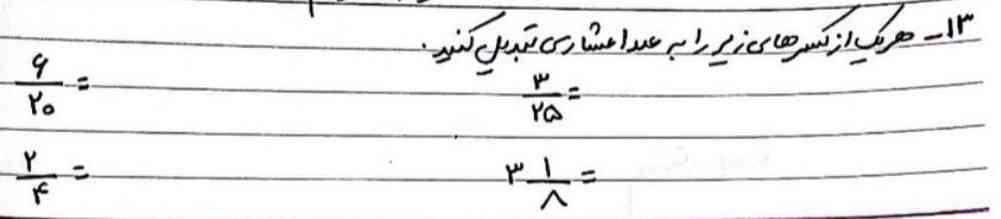 ۱۳- هریک از کسرهای زیر را به عدد اعشاری تبدیل کنید.
۳/۲۵ = ۶/۲۰ =
۳ ۱/۸ = ۲/۴ =